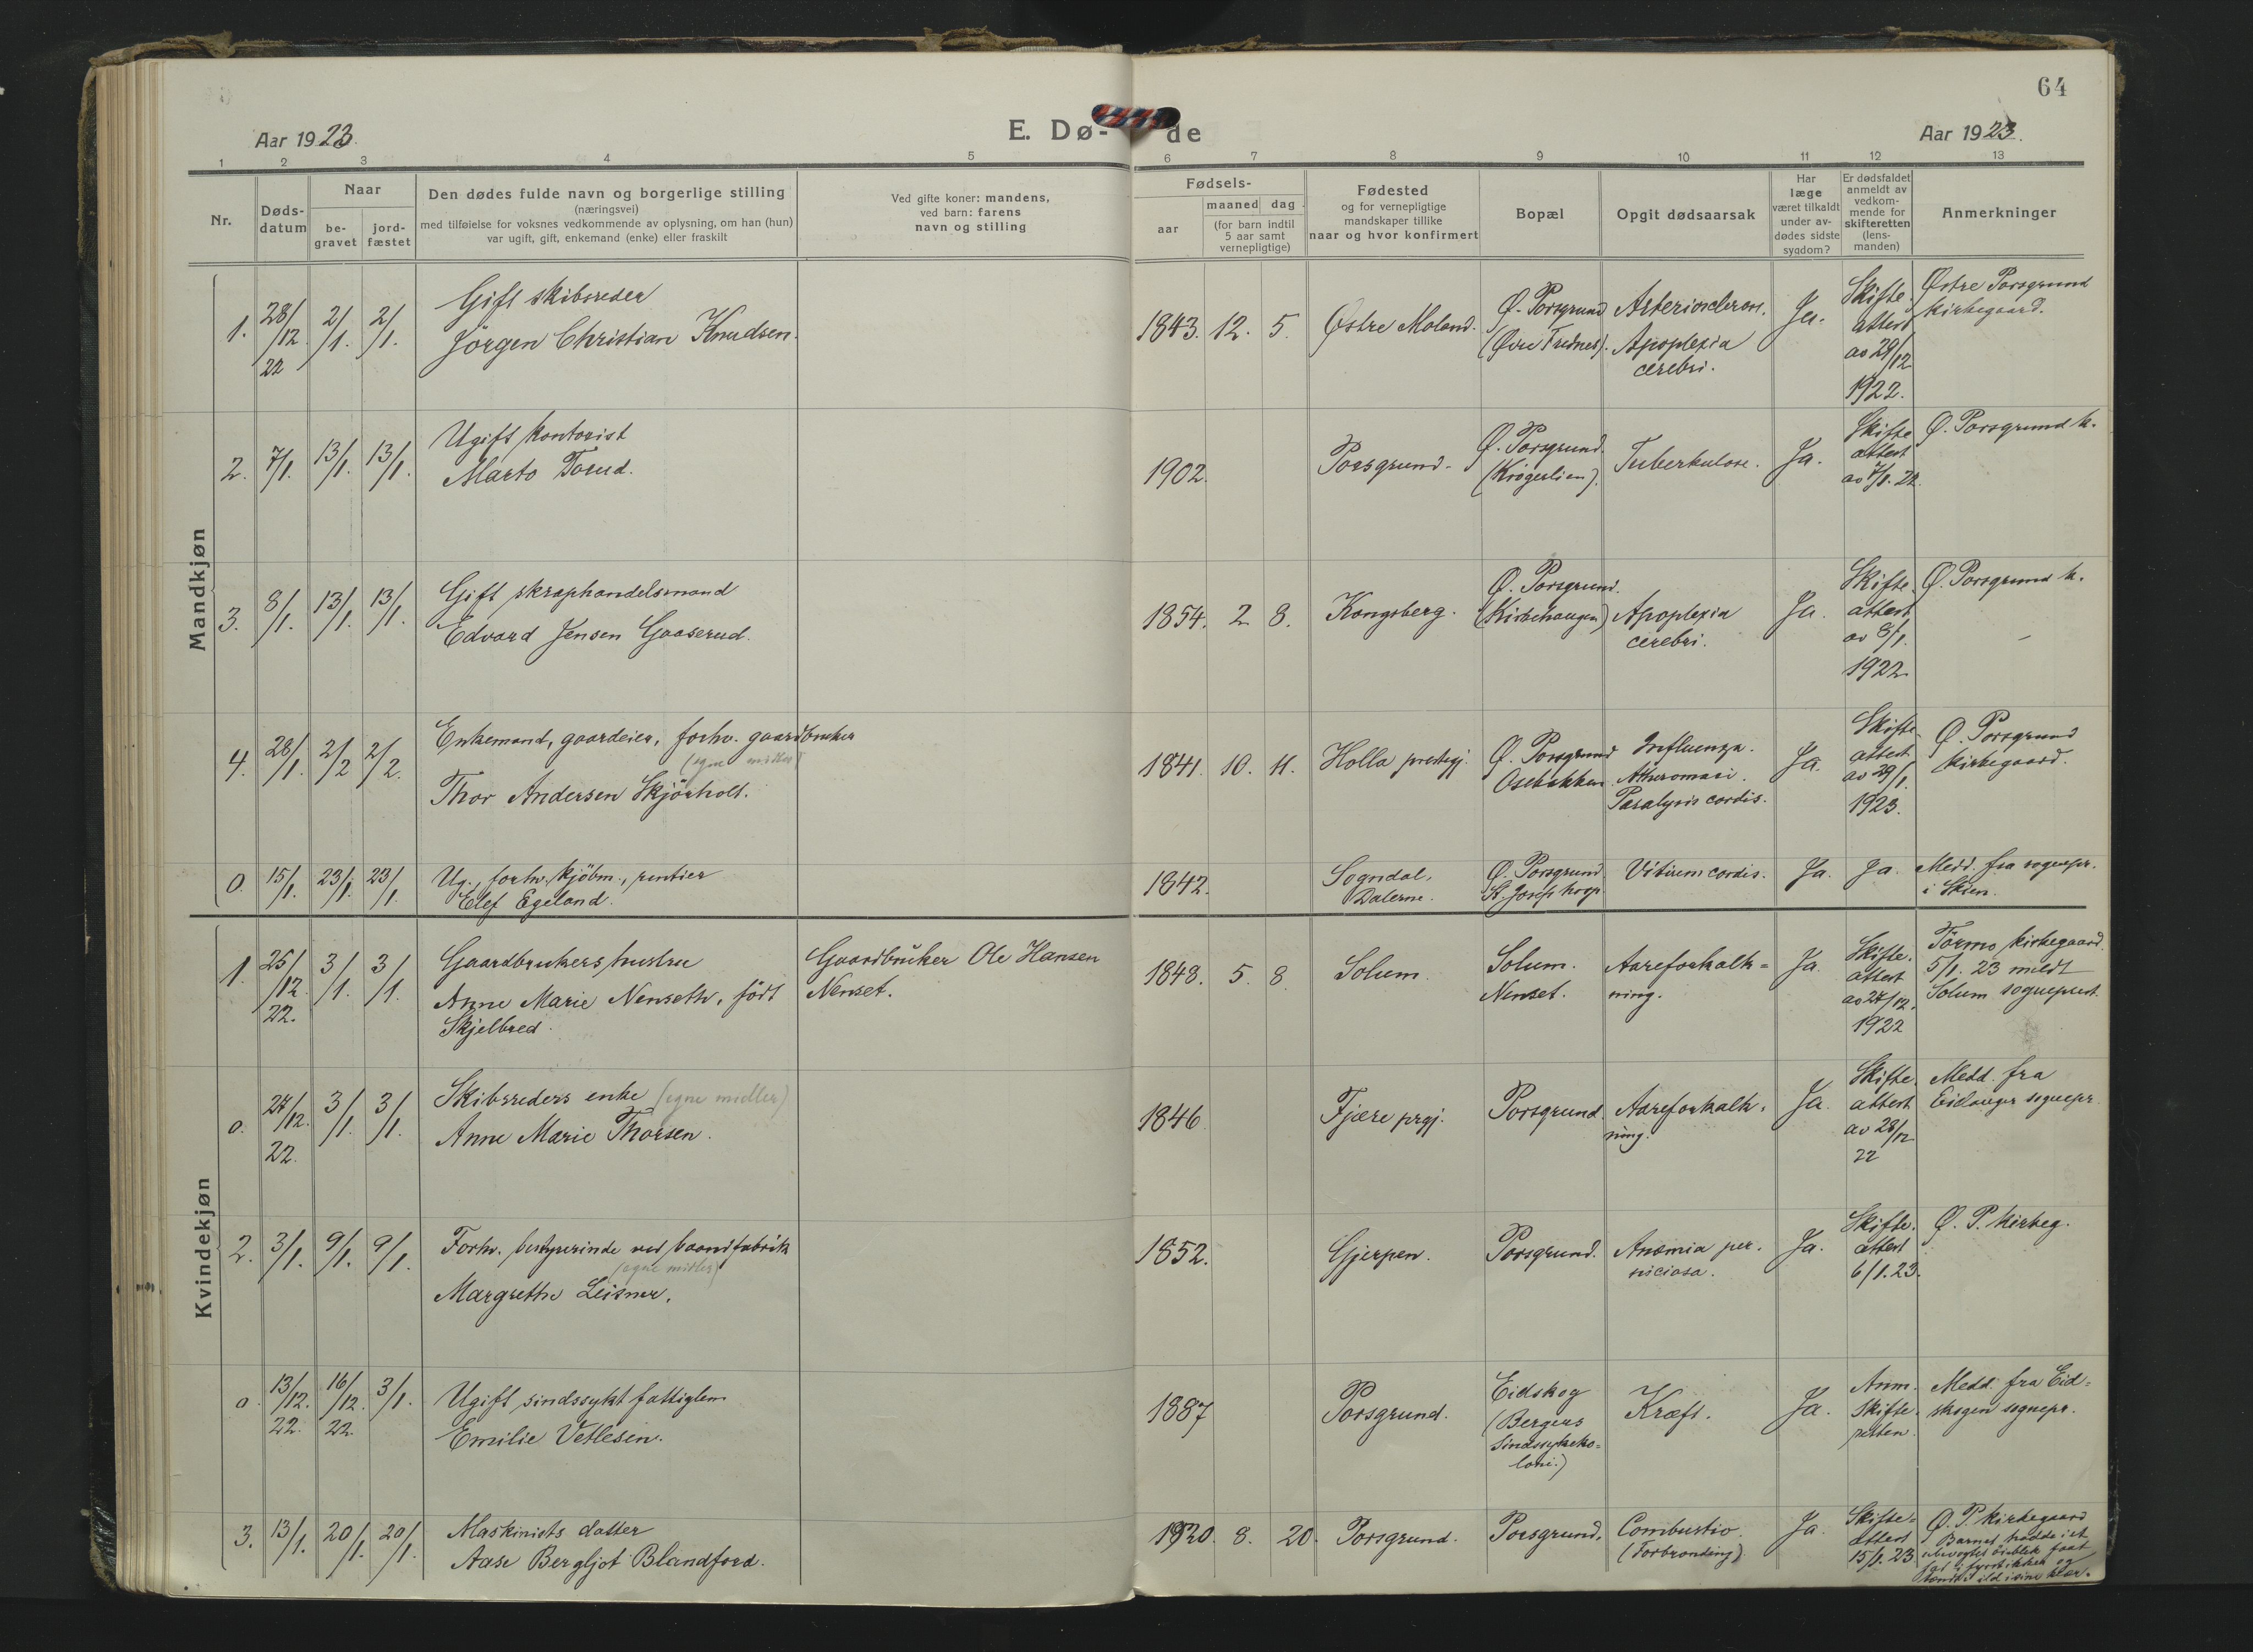 64
Aar 1923.
E. Dø-
de
Aar 1923.
1 2 3 4 5 6 7 8 9 10 11 12 13
Nr.
Døds-
datum
Naar
be-
gravet
jord-
fæstet
Den dødes fulde navn og borgerlige stilling
(næringsvei)
med tilføielse for voksnes vedkommende av oplysning, om han (hun)
var ugift, gift, enkemand (enke) eller fraskilt
Ved gifte koner: mandens,
ved barn: farens
navn og stilling
Fødsels-
aar
maaned dag
(for barn indtil
5 aar samt
vernepligtige)
Fødested
og for vernepligtige
mandskaper tillike
naar og hvor konfirmert
Bopæl
Opgit dødsaarsak
Har
læge
været tilkaldt
under av-
dødes sidste
sygdom?
Er dødsfaldet
anmeldt av
vedkom-
mende for
skifteretten
(lens-
manden)
Anmerkninger
Mandkjøn
1.
28/12
22
2/1.
2/1.
Gift skibsreder
Jörgen Christian Knudsen.
1843. 12. 5.
Østre Moland.
Ø. Porsgrund
(Øvre Frednes).
Arteriosclerose.
Apoplexia
cerebri.
Ja.
Skifte
attest
av 29/12
1922.
Østre Porsgrund
kirkegaard.
2.
7/1.
13/1.
13/1.
Ugift kontorist
Marto Torud.
1902.
Porsgrund.
Ø. Porsgrund.
(Krøgerlien).
Tuberkulose.
Ja.
Skifte
attest
av 7/1. 22.
Ø. Porsgrund k.
3.
8/1.
13/1.
13/1.
Gift skraphandelsmand
Edvard Jensen Gaaserud.
1854. 2 8.
Kongsberg.
Ø. Porsgrund.
(Kirkehaugen)
Apoplexia
cerebri.
Ja.
Skifte.
attest
av 8/1.
1922.
Ø. Porsgrund k.
4.
28/1.
2/2
2/2.
Enkemand, gaardeier, forhv. gaardbruker
(egne midler)
Thor Andersen Skjörholt.
1841. 10. 11.
Holla prestgj.
Ø. Porsgrund
Osebakken.
Influenza.
Atheromasi.
Paralysis cordis.
Ja.
Skifte
attest
av 29/1.
1923.
Ø. Porsgrund
kirkegaard.
0.
15/1.
23/1.
23/1.
Ug., forhv. kjöbm., rentier
Elef Egeland.
1842.
Sogndal,
Dalerne.
Ø. Porsgrund
St. Josefs hosp.
Vitium cordis.
Ja.
Ja.
Medd. fra sognepr.
i Skien.
Kvindekjøn
1.
25/12
22.
3/1.
3/1.
Gaardbrukers hustru
Anne Marie Nenseth, født
Skjelbred.
Gaardbruker Ole Hansen
Nenset.
1848. 5. 8.
Solum.
Solum.
Nenset.
Aareforkalk=
ning.
Ja.
Skifte.
attest
av 27/12.
1922
Törmo kirkegaard.
5/1. 23 meldt
Solum sogneprest.
0.
27/12.
22.
3/1.
3/1.
Skibsreders enke (egne midler)
Anne Marie Thorsen.
1846
Fjære prgj.
Porsgrund.
Aareforkalk.
ning.
Ja.
Skifte.
attest
av 28/12
22
Medd. fra
Eidanger sognepr.
2.
3/1.
9/1.
9/1.
Forhv. bestyrerinde ved baandfabrik
(egne midler)
Margrethe Leisner.
1852.
Gjerpen.
Porsgrund.
Anæmia per.
niciosa.
Ja.
Skifte.
attest
6/1. 23.
Ø. P. kirkeg.
0.
13/12.
22.
16/12.
22.
3/1.
Ugift sindssykt fattiglem
Emilie Vetlesen.
1887
Porsgrund.
Eidskog
(Bergers
Sindssykeko=
loni.)
Kræft.
Ja.
Anm.
Skifte.
retten.
Medd. fra Eid=
skogen sognepr.
3.
13/1.
20/1.
20/1.
Maskinists datter
Aase Bergljot Blandford.
1920. 8. 20.
Porsgrund.
Porsgrund.
Combustio.
(Forbrænding)
Ja.
Skifte=
attest
15/1. 23
Ø. P. kirkegaard
Barnet hadde i et
ubevogtet öieblik faat
fat i fyrstikker og
tændt ild i sine klær.